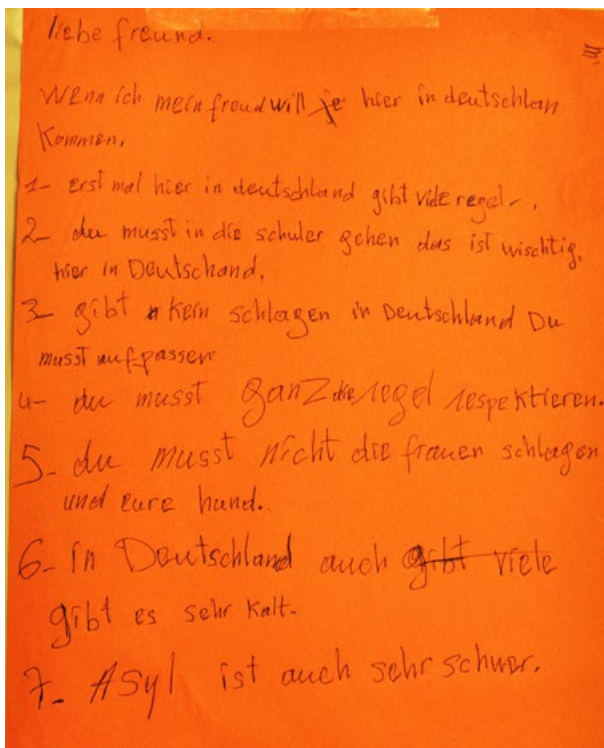 liebe freund.
Wenn ich mein freud will hier in deutschlan
Kommen,
1- erst mal hier in deutschland gibt viele regel-.
2- du musst in die schuler gehen das ist wischtig.
hier in Deutschand.
3- gibt kein schlagen in Deutschland Du
musst aufpassen
4- du musst ganz die regel respektieren.
5- du musst nicht die frauen schlagen
und eure hund.
6- in Deutschland auch gibt viele
gibt es sehr kalt-
7- ASyl ist auch sehr schwer.